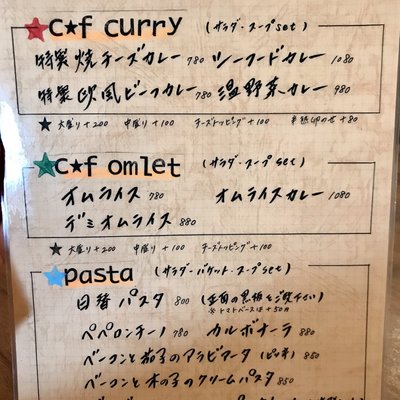 ★c★f curry (サラダ・スープset)
特製 焼チーズカレー 780 シーフードカレー 1080
特製 欧風ビーフカレー 780 温野菜カレー 980
★ 大盛り+200 中盛り+100 チーズトッピング+100 半熟卵のせ+80
★c★f omlet (サラダ・スープset)
オムライス 780 オムライスカレー 1080
デミオムライス 880
★ 大盛り+200 中盛り+100 チーズトッピング+100
★pasta (サラダ・バケット・スープset)
日替パスタ 800 (正面の黒板をご覧下さい)
※トマトベースは+50円
ペペロンチーノ 780 カルボナーラ 880
ベーコンと茄子のアラビアータ(ピリ辛) 850
ベーコンと木の子のクリームパスタ 850